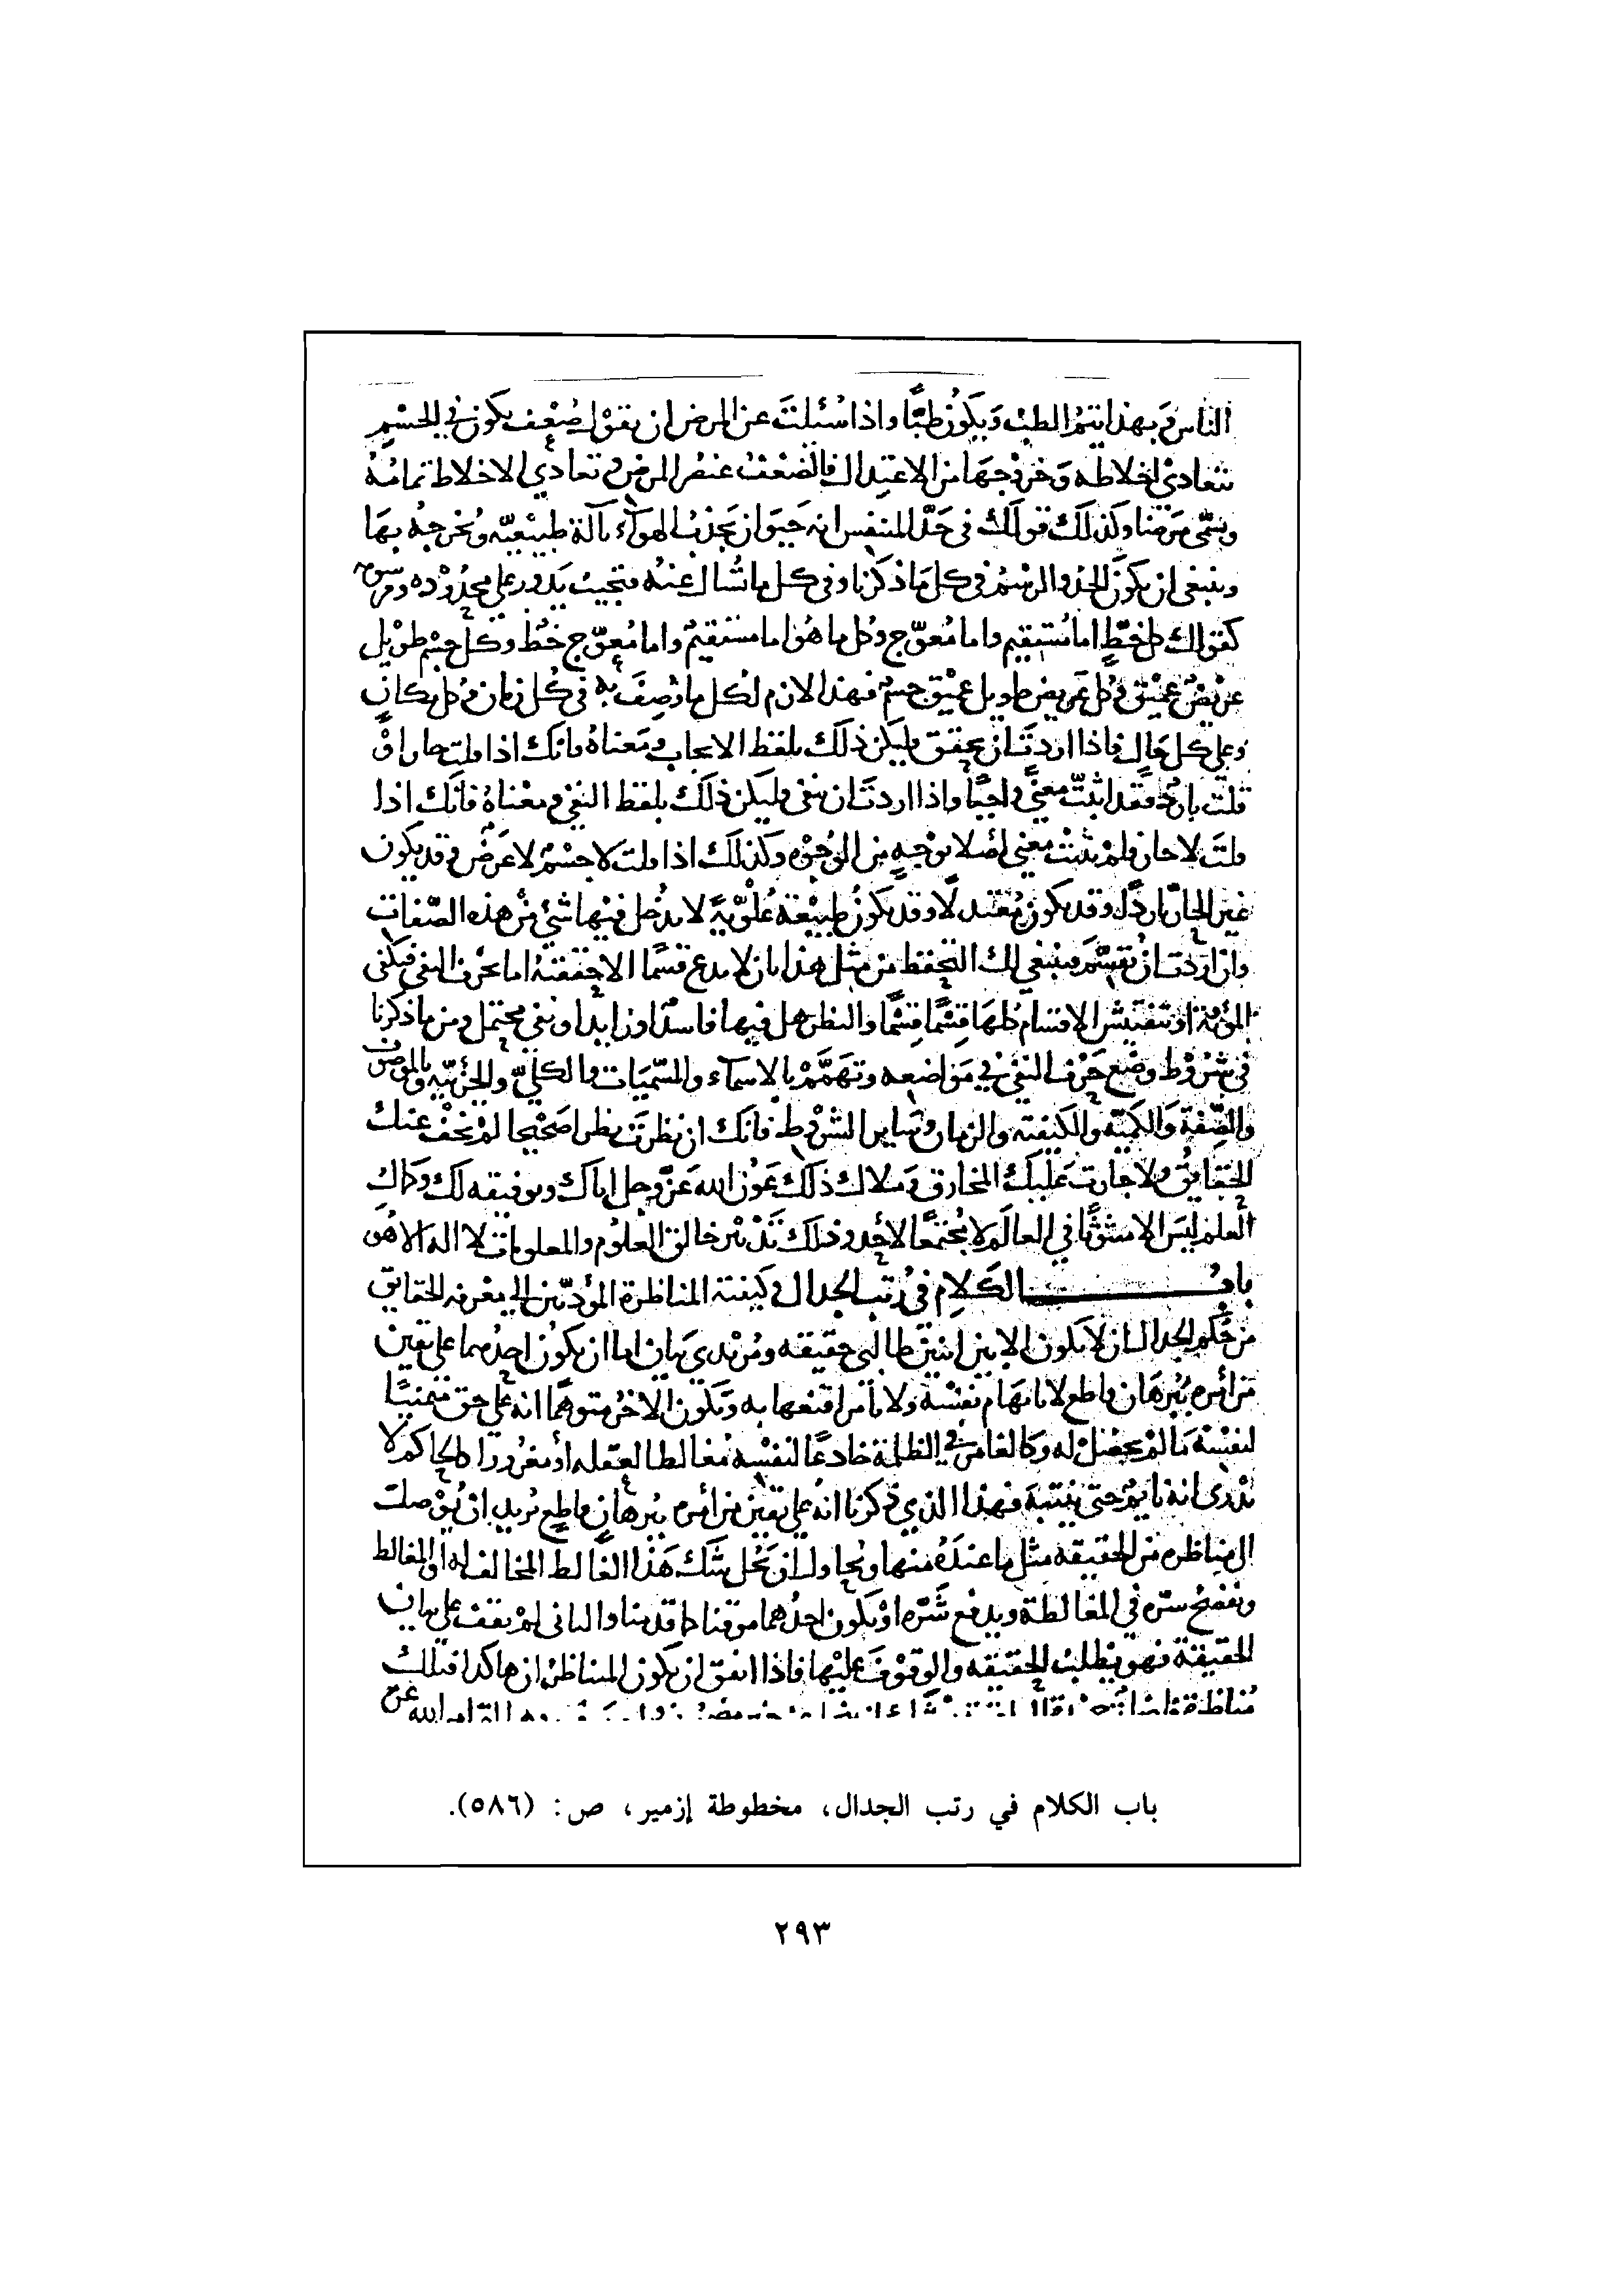 الناس وبهذا يتم الطب ويكون طبا واذا سئلت عن المرض ان يقول ضعف يكون في الجسم
بتعادي اخلاطه وخروجها من الاعتدال فالضعف عنصر المرض وتعادي الاخلاط تمامه
ويسمى مرضا وكذلك قولك في حد المتنفس انه حيوان يجذب الهواء بآلة طبيعيه ويخرجه بها
وينبغي ان يكون الحد والرسم في كل ما ذكرنا وفي كل ما تسأل عنه فتجيب يدور على محدوده ومرسومه
كقولك كل خط اما مستقيم واما معوج وكل ما هو اما مستقيم واما معوج خط وكل جسم طويل
عريض عميق وكل عريض طويل عميق جسم فهذا لازم لكل ما وصف به في كل زمان وكل مكان
وعلى كل حال فاذا اردت ان تحقق فليكن ذلك بلفظ الايجاب ومعناه فانك اذا قلت حار او
قلت بارد فقد اثبت معنى واجبا واذا اردت ان تنفي فليكن ذلك بلفظ النفي ومعناه فانك اذا
قلت لا حار فلم تثبت معنى اصلا بوجه من الوجوه وكذلك اذا قلت لا جسم لا عرض وقد يكون
غير الحار باردا وقد يكون معتدلا وقد يكون طبيعة علوية لا يدخل فيها شيء من هذه الصفات
وان اردت ان تقسم فينبغي لك التحفظ من مثل هذا بان لا تدع قسما الا حققته اما بحرف النفي فتكفى
المؤنة او تفتيش الاقسام كلها قسما قسما والنظر هل فيها فاسدا وزايدا ونفي محتمل ومن ما ذكرنا
في شروط وضع حرف النفي في مواضعه وتهمم بالاسماء والمسميات والكلي والجزئيه والموصوف
والصفة والكمية والكيفية والزمان وساير الشروط فانك ان نظرت نظرا صحيحا لم تخف عنك
الحقايق ولا جازت عليك المخارق وملاك ذلك عون الله عز وجل اياك وتوفيقه لك وذاك
العلم ليس الا مبثوثا في العالم لا مجتمعا لاحد وذلك تدبير خالق العلوم والمعلومات لا اله الا هو
باب الكلام في رتب الجدال وكيفية المناظرة المؤديين الى معرفه الحقايق
من حكم الجدال ان لا يكون الا بين اثنين طالبي حقيقه ومريدي بيان اما ان يكون احدهما على يقين
من امره ببرهان قاطع لا بايهام نفسه ولا بامر اقنعها به ويكون الاخر متوهما انه على حق ممنيا
لنفسه ما لم يحصل له وكالغامر في الظلمة خادعا لنفسه مغالطا لعقله او مغرورا كالحالم لا
يدري انه نايم حتى ينتبه فهذا الذي ذكرنا انه على يقين من امره ببرهان قاطع يريد ان يوصل
الى مناظره من الحقيقه مثل ما عنده منها ويحاول ان يحل شك هذا الغالط المخالف له او المغالط
ويفضح ستره في المغالطة ويدفع شره او يكون احدهما موقنا كما قدمنا والثاني لم يقف على بيان
الحقيقة فهو يطلب الحقيقه والوقوف عليها فاذا اتفق ان يكون المناظران هاكذا فتلك
مناظرة
باب الكلام في رتب الجدال، مخطوطة إزمير، ص: (٥٨٦).
٢٩٣